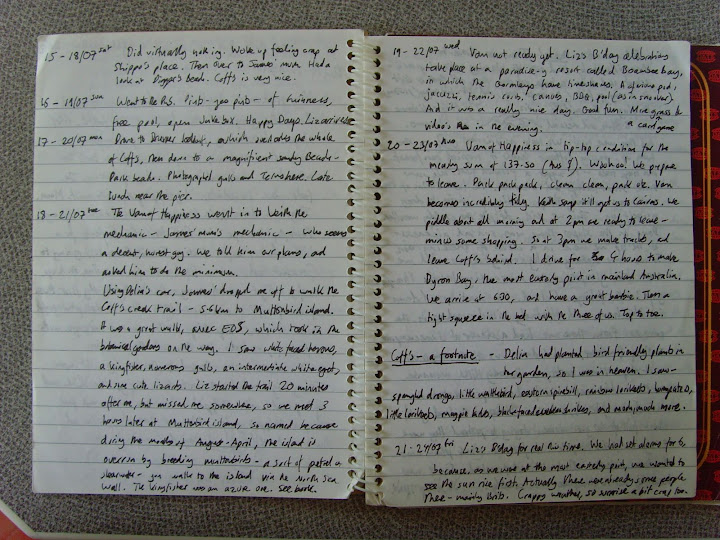 15 - 18/07 sat Did virtually nothing. Woke up feeling crap at
Shippo's place. Then over to James' mum's. Had a
look at Digger's beach. Coffs is very nice.
16 - 19/07 sun Went to the Pub. Pint-goo-pint - of Guinness,
free pool, open Juke box. Happy Days. Liz arrives
17 - 20/07 mon Drove to lookout, which overlooks the whole
of Coffs, then down to a magnificent sandy Beach -
Park beach. Photographed gulls and Terns here. Late
lunch near the pier.
18 - 21/07 tue The Van of Happiness went in to Keith the
mechanic - James' mum's mechanic - who seems
a decent, honest guy. We told him our plans, and
asked him to do the minimum.
Using Delia's car, James' dropped me off to walk the
Coff's creek trail - 5.6km to Muttonbird island.
It was a great walk, which took in the
botanical gardens on the way. I saw white faced herons,
a kingfisher, numerous gulls, an intermediate white egret,
and some cute lizards. Liz started the trail 20 minutes
after me, but missed me somewhere, so we met 3
hours later at Muttonbird island, so named because
during the months of August-April, the island is
overrun by breeding muttonbirds - a sort of petrel or
shearwater - you walk to the island via the North Sea
Wall. The kingfisher was an azure one. See book.
19 - 22/07 wed Van not ready yet. Liz's B'day celebrations
take place at a paradise-y resort called Boambee bay,
in which the Gormleys have timeshares. A
jacuzzi, tennis courts, canoes, BBQ, pool (as in snooker).
And it was a really nice day. Good fun. More grass &
video's in the evening. a card game
20 - 23/07 thu Van of Happiness in tip-top condition for the
measly sum of 137.50 (Aus $). Woohoo! We prepare
to leave. Pack pack pack, clean clean, pack etc. Van
becomes incredibly tidy. Keith says it'll get us to Cairns. We
piddle about all morning and at 2pm we're ready to leave -
minus some shopping. So at 3pm we make tracks, and
leave Coff's behind. I drive for 4 hours to make
Byron Bay, the most easterly point in mainland Australia.
We arrive at 630, and have a great barbie. Then a
tight squeeze in the bed with the three of us. Top to toe.
Coff's - a footnote. - Delia had planted bird friendly plants in
her garden, so I was in heaven. I saw -
spangled drongo, little wattlebird, eastern spinebill, rainbow lorikeets,
little lorikeets, magpie larks, blackfaced cuckoo shrikes, and much, much more.
21 - 24/07 fri Liz's B'day for real this time. We had set alarms for 6,
because, as we were at the most easterly point, we wanted to
see the sun rise first. Actually there were already some people
there - mainly brits. Crappy weather, so sunrise a bit crap too.